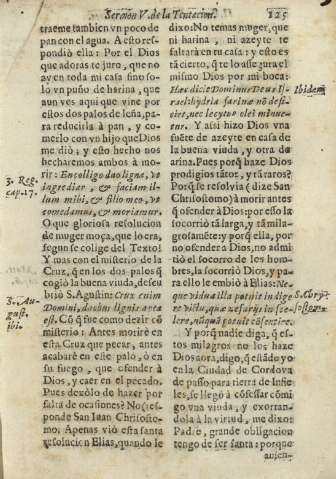 Sermon V. de la Tentacion. 125
traeme tambien vn poco de
pan con el agua. A esto res-
pondió ella: Por el Dios
que adoras te juro, que no
ay en toda mi casa sino so-
lo vn puño de harina, que
aun ves aqui que vine por
estos dos palos de leña, pa-
ra reducirla à pan, y co-
merlo con vn hijo que Dios
me diò; y esto hecho nos
hecharemos ambos à mo-
rir: En colligo duo ligna, vt
3. Reg. cap. 17.
ingrediar, & faciam il-
lum mihi, & filio meo, vt
comedamus, & moriamur.
O que gloriosa resolucion
de muger moça, que lo era,
segun se colige del Texto!
Y mas con el misterio de la
Cruz, q en los dos palos q
cogiò la buena viuda, descu-
briò S. Agustin: Crux cum
3. Au-
gust.
ibi.
Domini, duobus lignis apta
est. Cō q fue como dezir cō
misterio: Antes morirè en
esta Cruz que pecar, antes
acabarè en este palo, ò en
su fuego, que ofender à
Dios, y caer en el pecado.
Pues dexòlo de hazer por
falta de ocasiones? No; res-
ponde San Iuan Chrisosto-
mo; Apenas viò esta santa
resolucion Elias, quando le
dixo: No temas muger, que
ni harina, ni azeyte te
faltarà en tu casa: y esto es
tā cierto, q te lo assegura el
mismo Dios por mi boca:
Hæc dicit Dominus Deus Is-
Ibidem
raël: hydria farinæ nō defi-
ciet, nec lecytus olei minue-
tur. Y assi hizo Dios vna
fuēte de azeyte en casa de
la buena viuda, y otra de
arina. Pues porq̄ haze Dios
prodigios tātos, y tā raros?
Porq̄ se resolviò (dize San
Chrisostomo) à morir antes
q ofender à Dios: por esso la
socorriò tā larga, y tā mila-
grosamēte: y porq̄ ella, por
no ofender à Dios, no admi-
tiò el socorro de los hom-
bres, la socorriò Dios, y pa-
ra ello le embiò à Elias: Ne-
que vidua illa potuit indige-
S. Chrys-
ostom.
re victu, quæ nefarijs in sce-
lere, nūquā potuit cōsentire.
Y porq̄ nadie diga, q es-
tos milagros no los haze
Dios aora, digo, q estādo yo
en la Ciudad de Cordova
de passo para tierra de Infie-
les, se llegò à cōfessar cōmi-
go vna viuda, y exortan-
dola à la virtud, me dixo:
Padre, grande obligacion
tengo de ser santa: porque
avien-